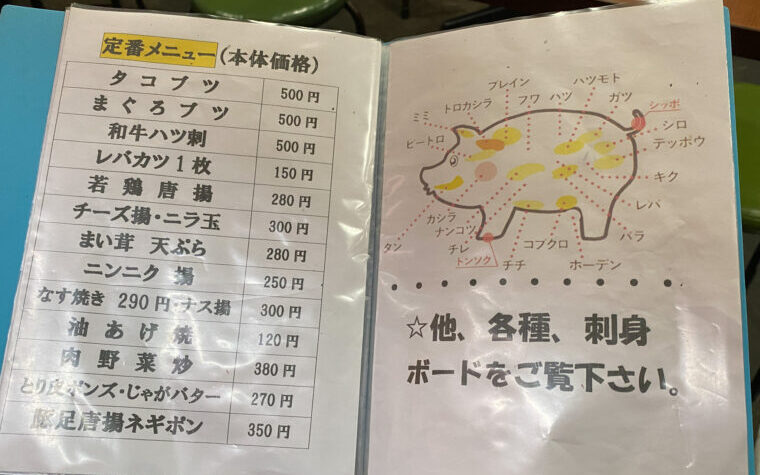 定番メニュー(本体価格)
タコブツ 500円
まぐろブツ 500円
和牛ハツ刺 500円
レバカツ1枚 150円
若鶏唐揚 280円
チーズ揚・ニラ玉 300円
まい茸 天ぷら 280円
ニンニク 揚 250円
なす焼き 290円・ナス揚 300円
油あげ焼 120円
肉野菜炒 380円
とり皮ポンズ・じゃがバター 270円
豚足唐揚ネギポン 350円
ブレイン
ハツモト
トロカシラ
フワ
ハツ
ガツ
シッポ
ミミ
シロ
ピートロ
テッポウ
キク
レバ
カシラ
ナンコツ
バラ
タン
チレ
コブクロ
トンソク
チチ
ホーデン
☆他、各種、刺身
ボードをご覧下さい。